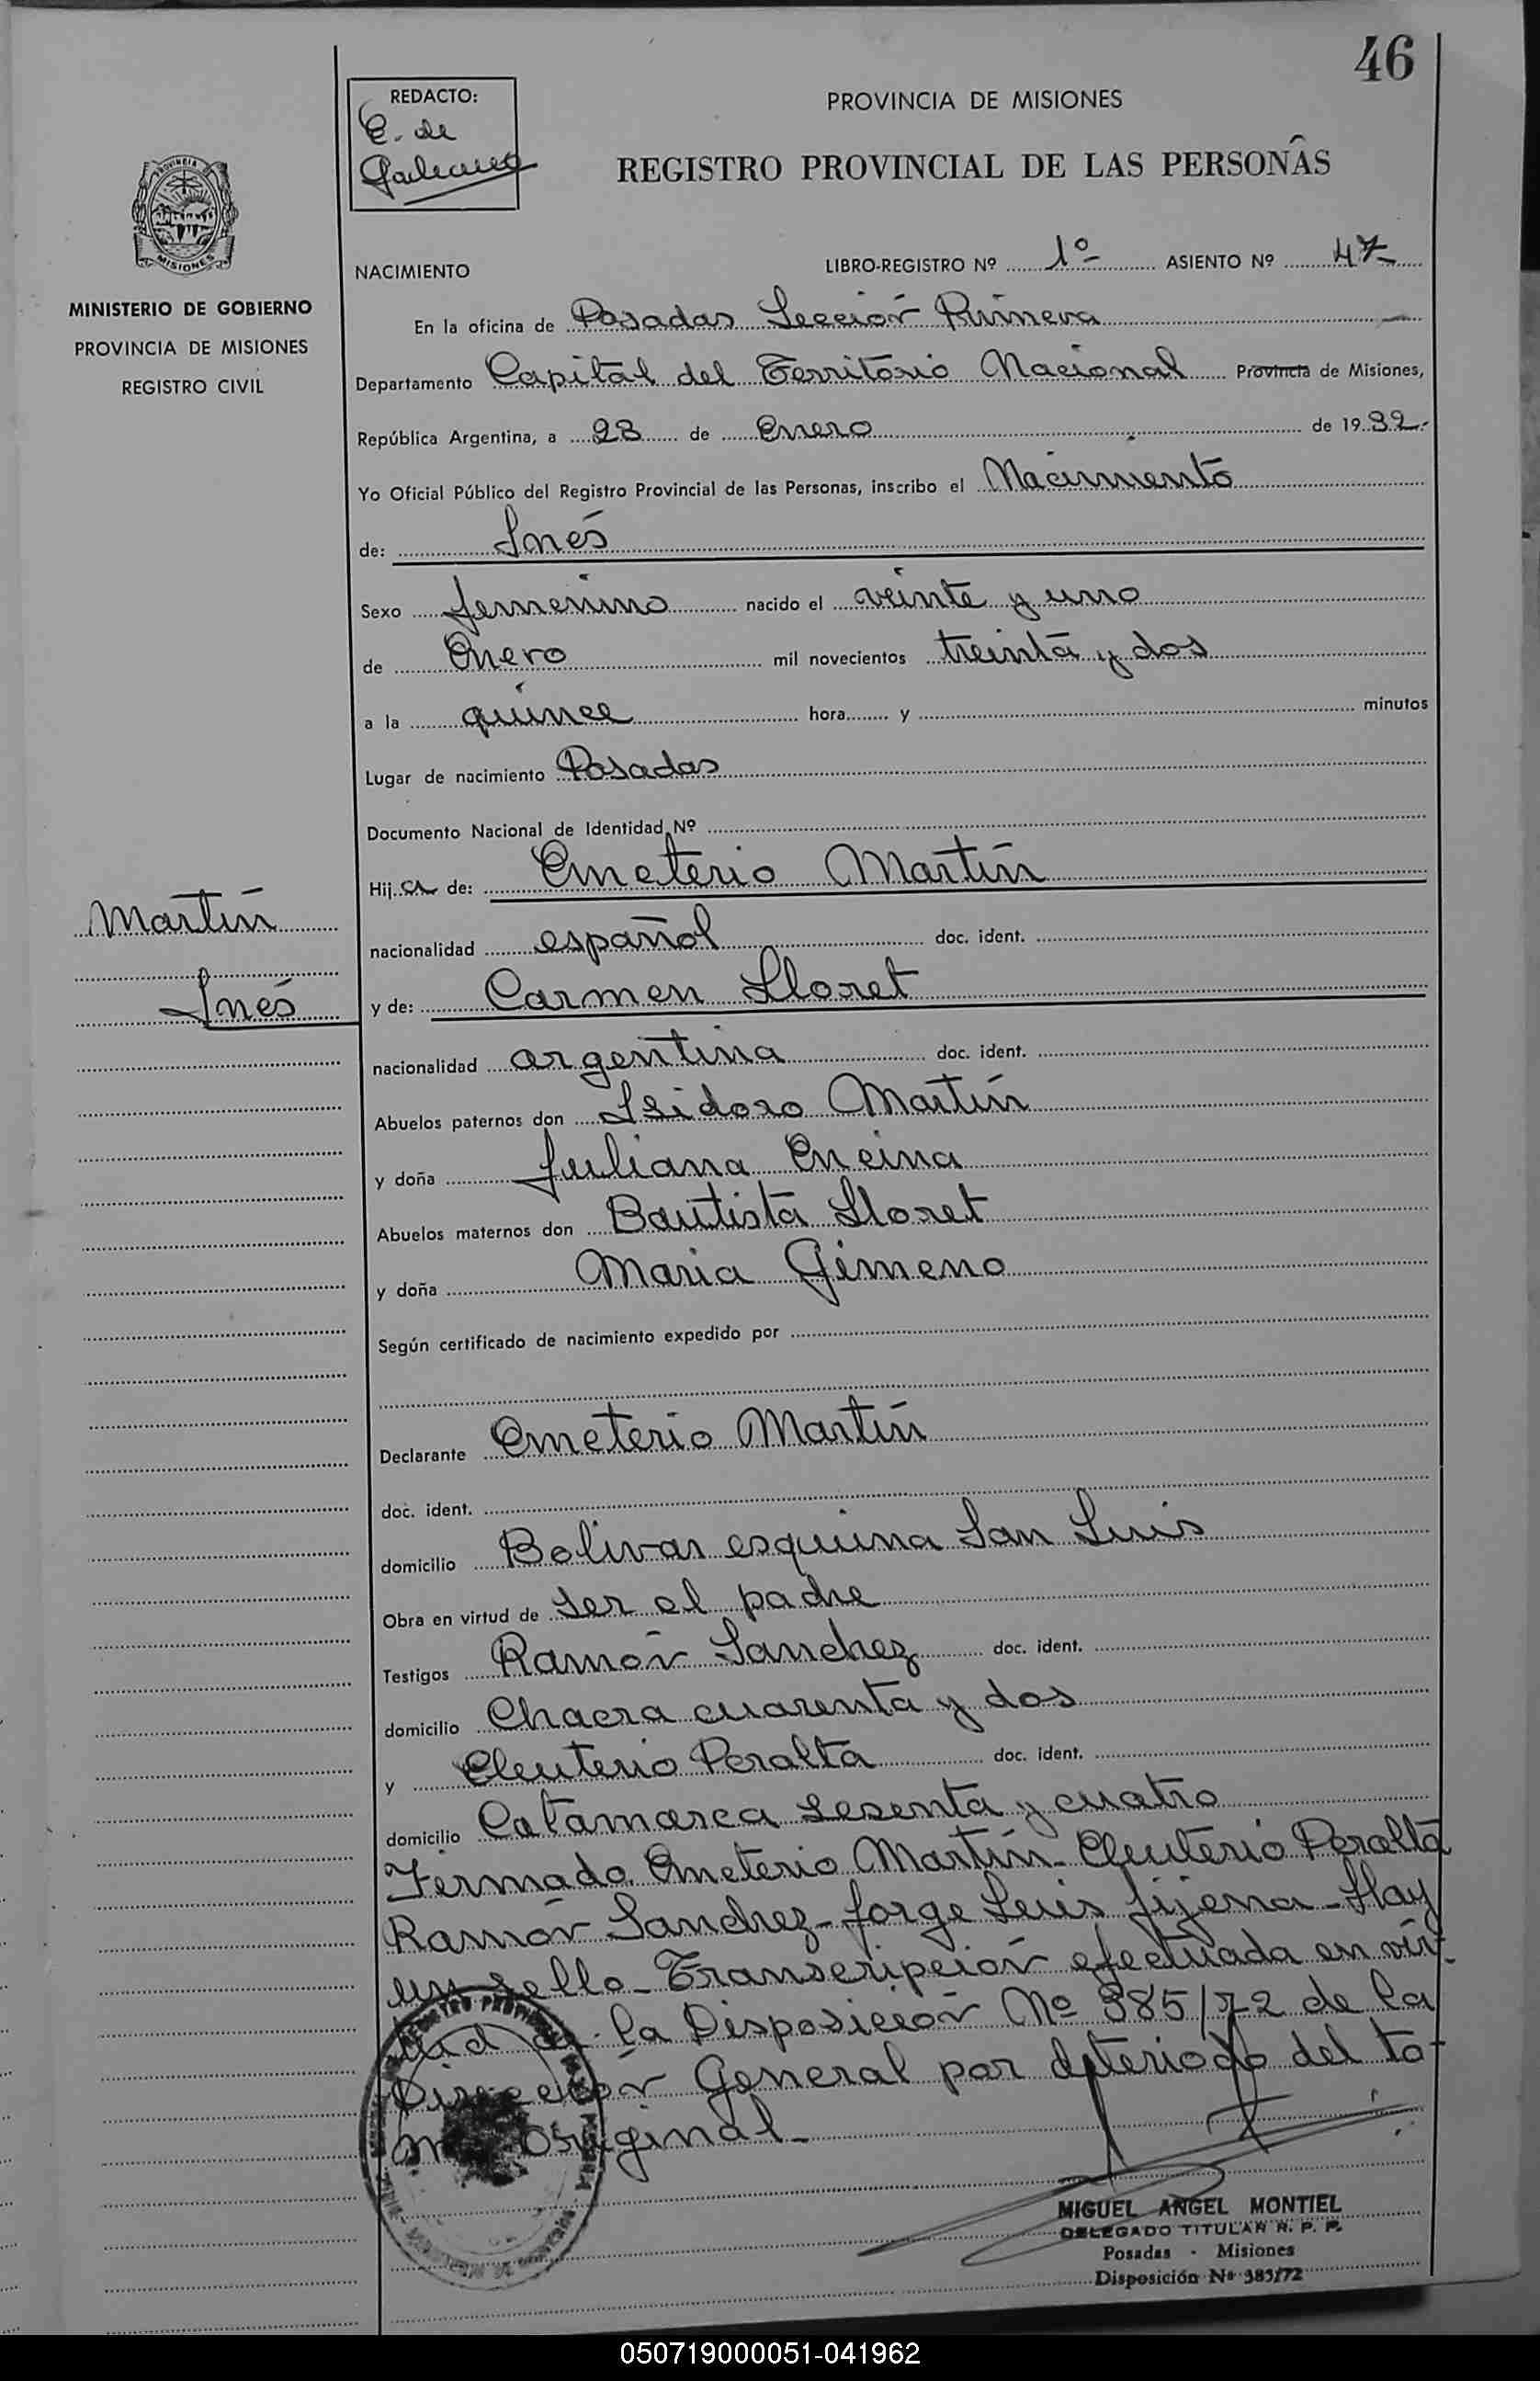 46
REDACTO:
E. de
Galeano
PROVINCIA DE MISIONES
REGISTRO PROVINCIAL DE LAS PERSONAS
MISIONES
MINISTERIO DE GOBIERNO
PROVINCIA DE MISIONES
REGISTRO CIVIL
NACIMIENTO
LIBRO-REGISTRO Nº 1º ASIENTO Nº 47
En la oficina de Posadas Sección Primera
Departamento Capital del Territorio Nacional Provincia de Misiones,
República Argentina, a 23 de Enero de 1932.
Yo Oficial Público del Registro Provincial de las Personas, inscribo el Nacimiento
de: Inés
Sexo femenino nacido el veinte y uno
de Enero mil novecientos treinta y dos
a la quince hora y minutos
Lugar de nacimiento Posadas
Documento Nacional de Identidad Nº
Hija de: Emeterio Martín
Martín
nacionalidad español doc. ident.
Inés
y de: Carmen Lloret
nacionalidad argentina doc. ident.
Abuelos paternos don Isidoro Martín
y doña Juliana Encina
Abuelos maternos don Bautista Lloret
y doña Maria Gimeno
Según certificado de nacimiento expedido por
Declarante Emeterio Martín
doc. ident.
domicilio Bolivar esquina San Luis
Obra en virtud de ser el padre
Testigos Ramón Sanchez doc. ident.
domicilio Chacra cuarenta y dos
y Eleuterio Peralta doc. ident.
domicilio Catamarca sesenta y cuatro
Firmado. Emeterio Martín - Eleuterio Peralta
Ramón Sanchez - Jorge Luis Jijena - Hay
un sello - Transcripción efectuada en vir-
tud de la Disposición Nº 385/72 de la
Dirección General por deteriodo del to-
mo original -
MIGUEL ANGEL MONTIEL
DELEGADO TITULAR R. P. P.
Posadas - Misiones
Disposición Nº 385/72
050719000051-041962